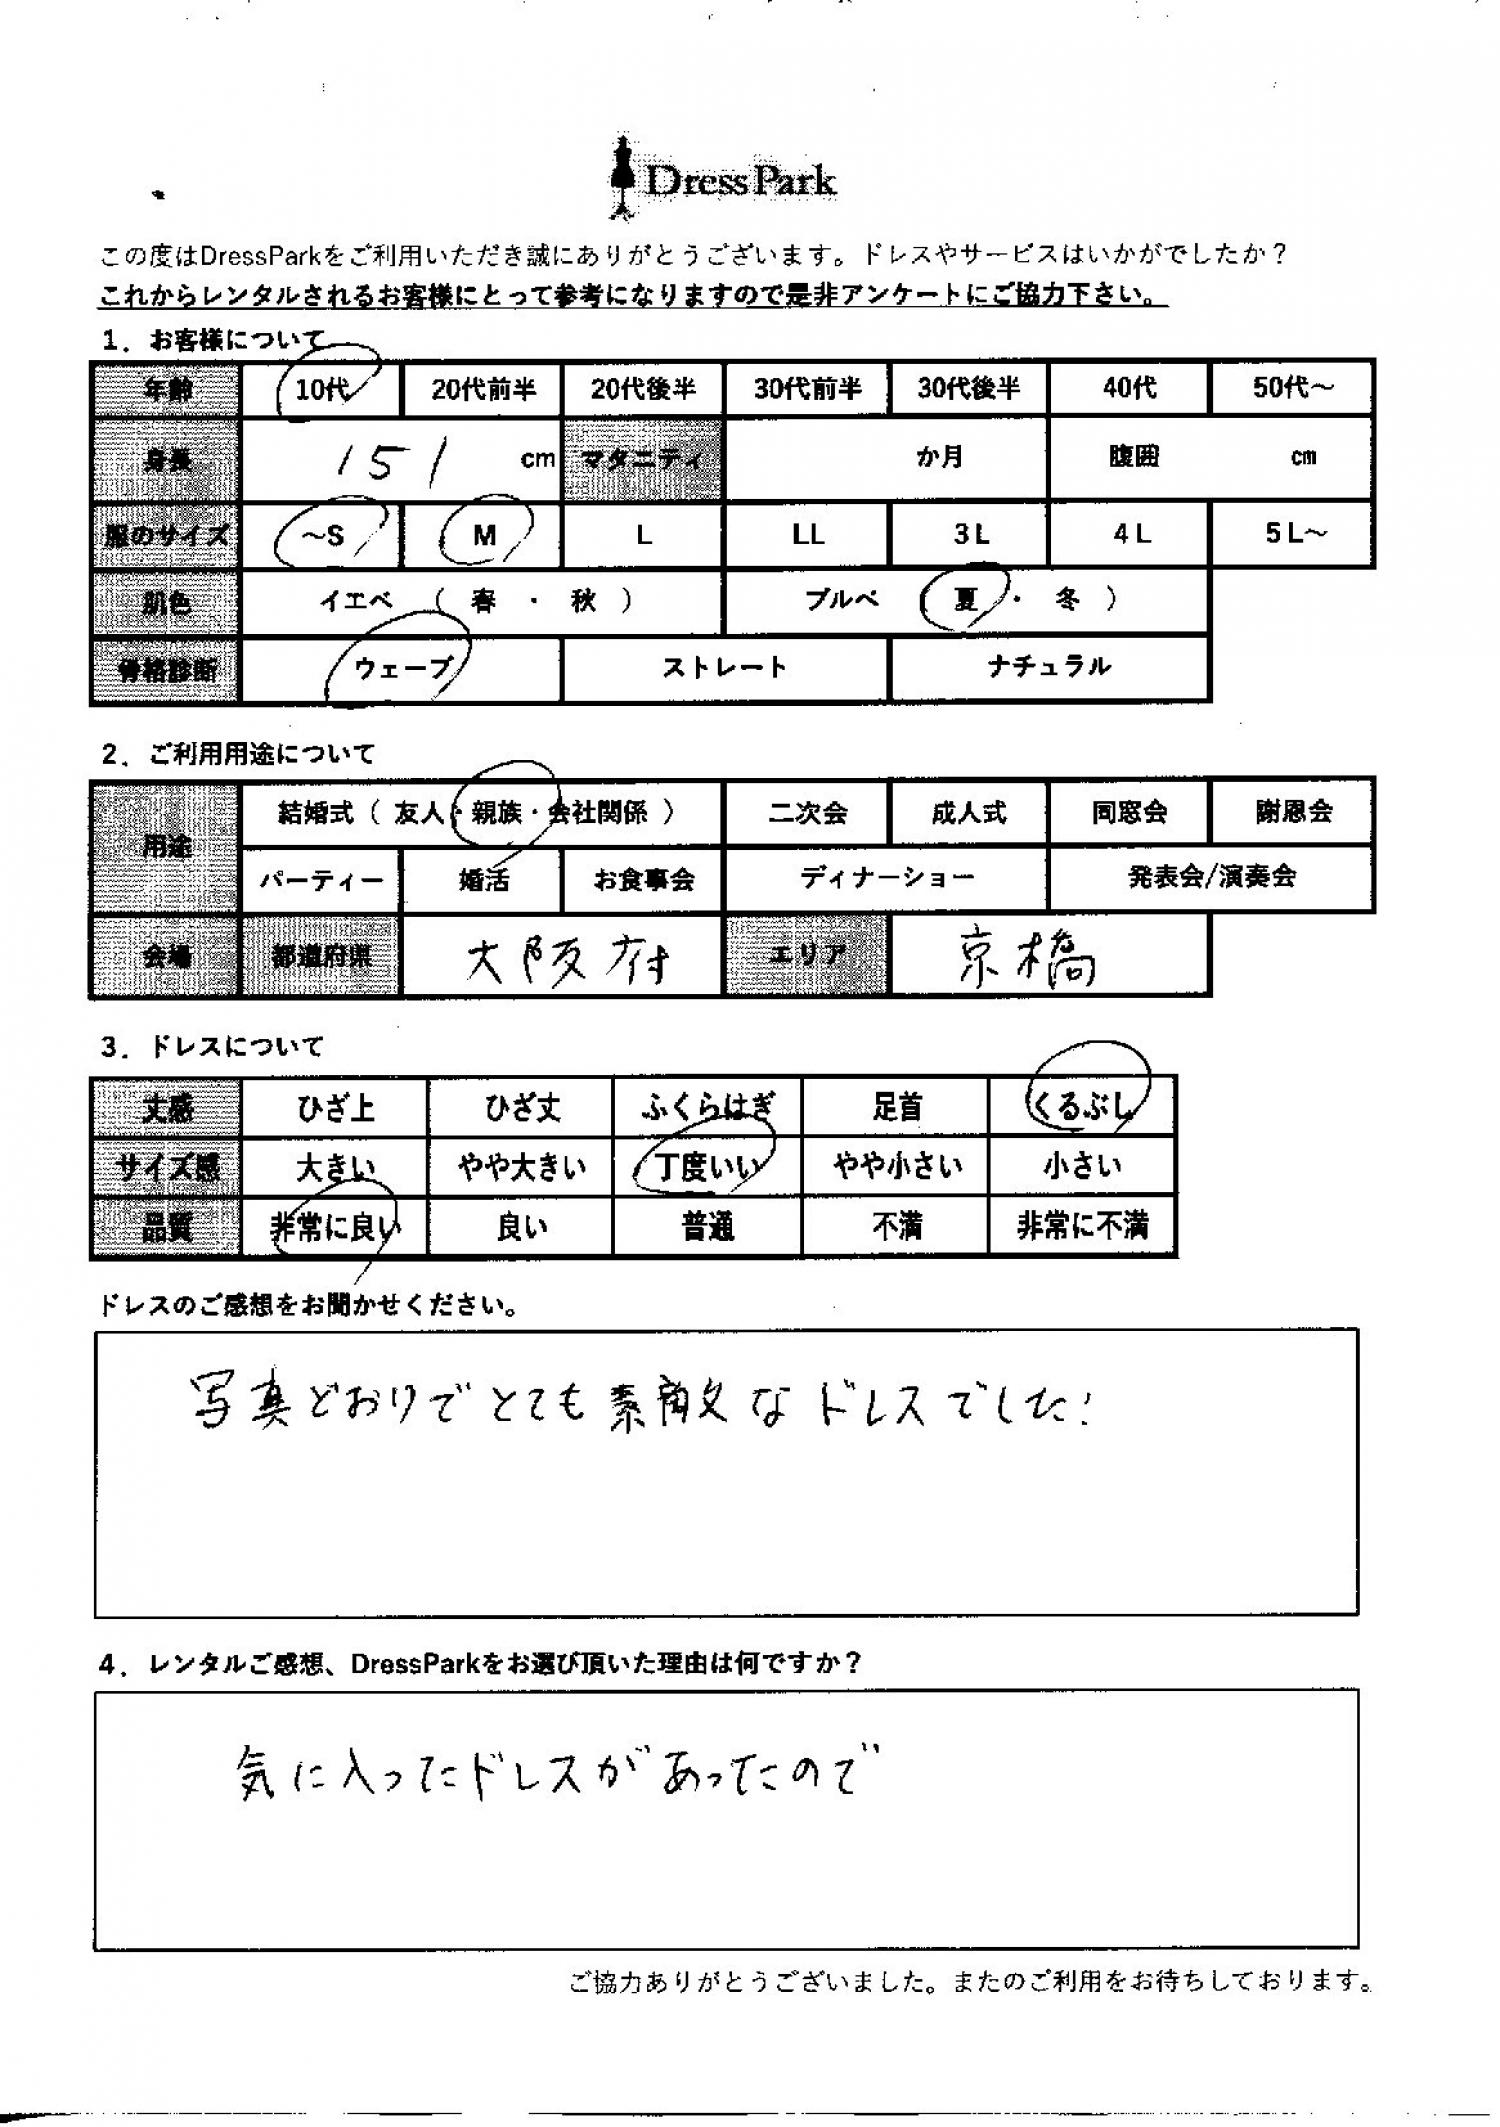 DressPark
この度はDressParkをご利用いただき誠にありがとうございます。ドレスやサービスはいかがでしたか？
これからレンタルされるお客様にとって参考になりますので是非アンケートにご協力下さい。
1．お客様について
年齢 10代 20代前半 20代後半 30代前半 30代後半 40代 50代～
身長 151 cm マタニティ か月 腹囲 cm
服のサイズ ～S M L LL 3L 4L 5L～
肌色 イエベ （ 春 ・ 秋 ） ブルベ （ 夏 ・ 冬 ）
骨格診断 ウェーブ ストレート ナチュラル
2．ご利用用途について
用途 結婚式（ 友人・親族・会社関係 ） 二次会 成人式 同窓会 謝恩会
パーティー 婚活 お食事会 ディナーショー 発表会/演奏会
会場 都道府県 大阪府 エリア 京橋
3．ドレスについて
丈感 ひざ上 ひざ丈 ふくらはぎ 足首 くるぶし
サイズ感 大きい やや大きい 丁度いい やや小さい 小さい
品質 非常に良い 良い 普通 不満 非常に不満
ドレスのご感想をお聞かせください。
写真どおりでとても素敵なドレスでした!
4．レンタルご感想、DressParkをお選び頂いた理由は何ですか？
気に入ったドレスがあったので
ご協力ありがとうございました。またのご利用をお待ちしております。